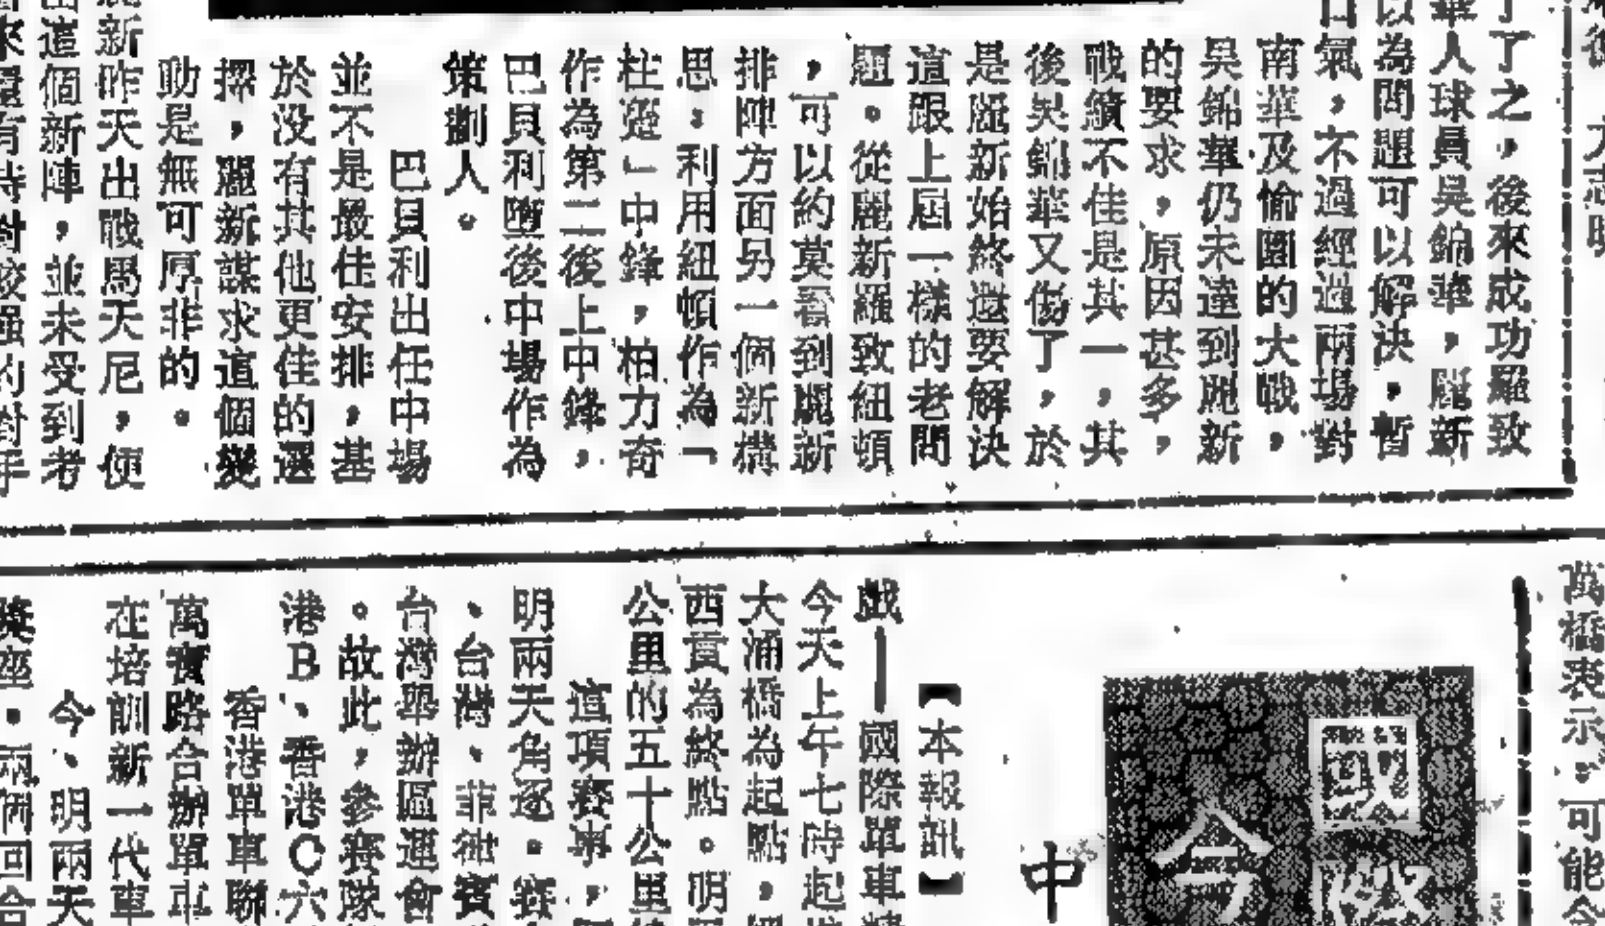 了了之，後來成功羅致
華人球員吳錦華，麗新
以為問題可以解決，暫
口氣，不過經過兩場對
南華及愉園的大戰，
吳錦華仍未達到麗新
的要求，原因甚多，
戰績不佳是其一，其
後吳錦華又傷了，於
是麗新始終還要解決
這跟上屆一樣的老問
題。從麗新羅致紐頓
，可以約莫看到麗新
排陣方面另一個新構
思：利用紐頓作為「
柱躉」中鋒，柏力奇
作為第二後上中鋒，
巴貝利墮後中場作為
策劃人。
巴貝利出任中場
並不是最佳安排，基
於没有其他更佳的選
擇，麗新謀求這個變
動是無可厚非的。
麗新昨天出戰馬天尼，便
出這個新陣，並未受到考
來還有待對較强的對手
萬橋表示，可能會
國際
今
中
【本報訊】
戲—國際單車
今天上午七時起
大涌橋為起點，
西貢為終點。明
公里的五十公里
這項賽事，
明兩天角逐。賽
、台灣、菲律賓
台灣舉辦區運會
。故此，參賽隊
港B、香港C六
香港單車聯
萬寶路合辦單車
在培訓新一代車
今、明兩天
獎座。兩個回合